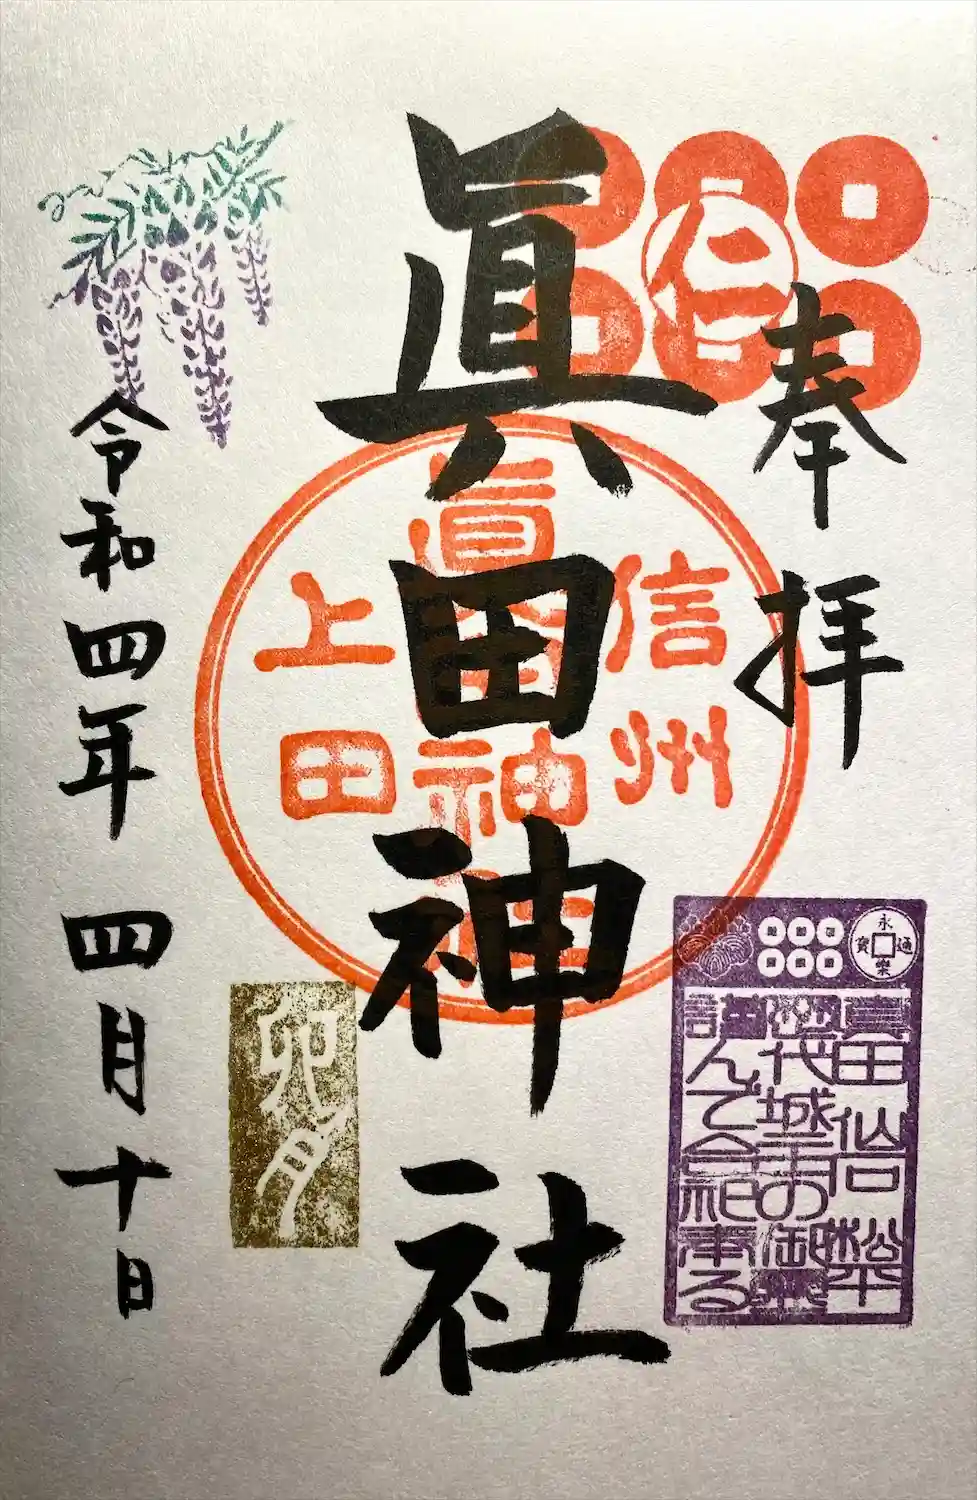 奉拝
仁
眞田神社
信州
眞田神社
上田
永樂通寳
真田 仙石 松平
歴代城主の御霊
謹んで合祀奉る
卯月
令和四年 四月十日